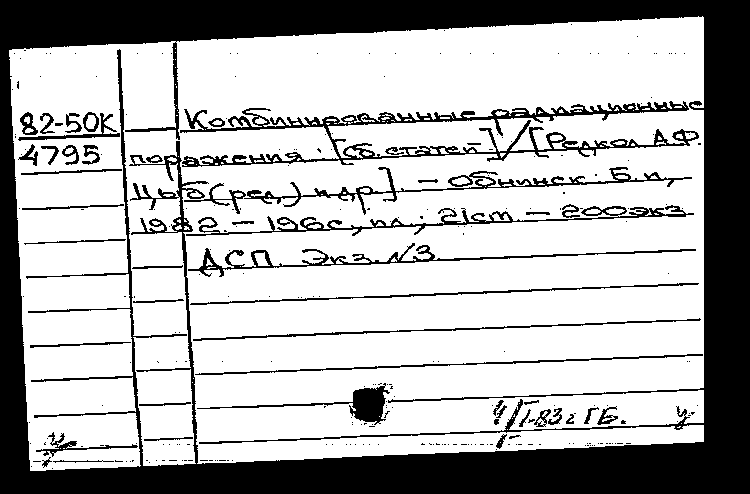 82-50К Комбинированные радиационные
4795 поражения : [Сб. статей] / [Редкол А.Ф.
Цыб (ред.) и др.]. – Обнинск : Б.и.,
1982. – 196с., ил.; 21ст – 200экз
ДСП. Экз. №3
4/I-83г ГБ. У